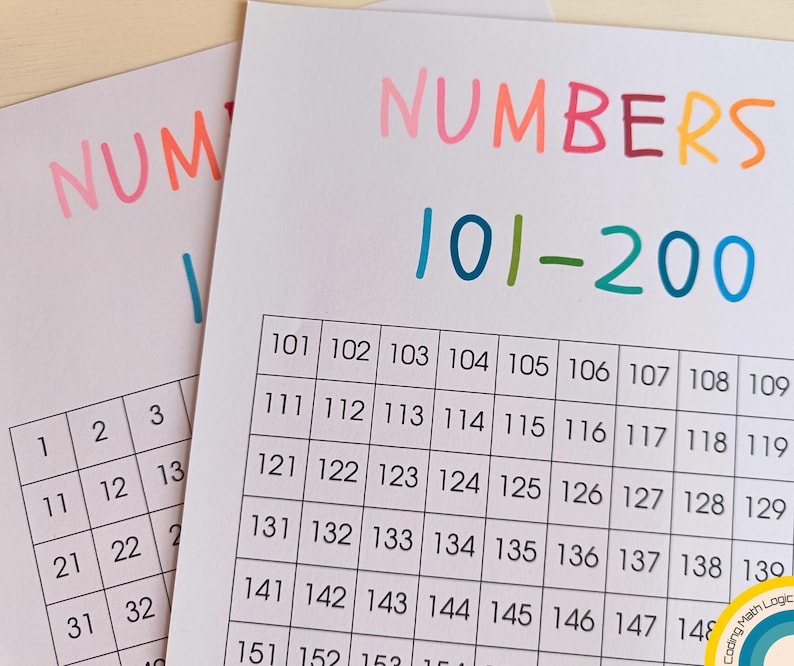 NUMBERS
101-200
101 102 103 104 105 106 107 108 109
111 112 113 114 115 116 117 118 119
121 122 123 124 125 126 127 128 129
131 132 133 134 135 136 137 138 139
141 142 143 144 145 146 147 148
151 152 153
NUM
1
1 2 3
11 12 13
21 22
31 32
Coding Math Logic